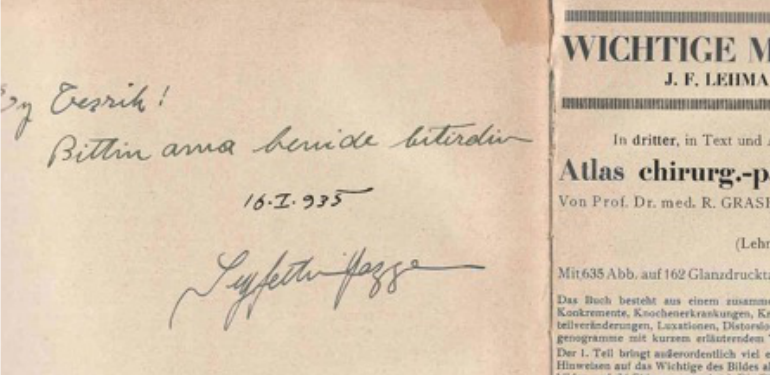 Ey Teşrih!
Bittin ama benide bitirdin
16.I.935
Seyfettin
WICHTIGE M
J. F. LEHMA
In dritter, in Text und
Atlas chirurg.-p
Von Prof. Dr. med. R. GRASH
(Lehr
Mit 635 Abb. auf 162 Glanzdruckta
Das Buch besteht aus einem zusamme
Konkremente, Knochenerkrankungen, Kn
teilveränderungen, Luxationen, Distorsio
genogramme mit kurzem erläuterndem
Der I. Teil bringt außerordentlich viel e
Hinweisen auf das Wichtige des Bildes al